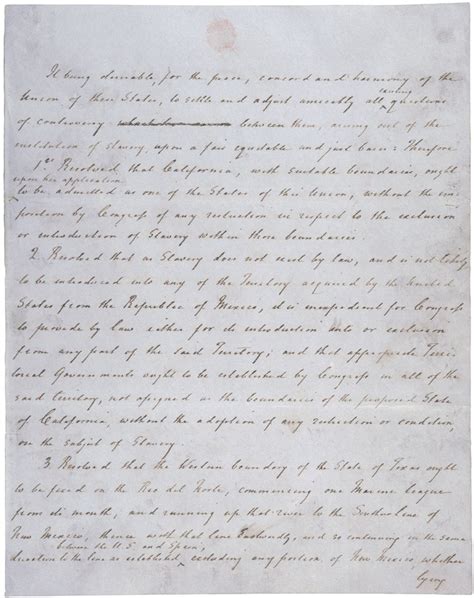 It being desirable, for the peace, concord and harmony of the
Union of these States, to settle and adjust amicably all existing questions
of controversy between them, arising out of the
institution of slavery, upon a fair equitable and just basis: Therefore
1st Resolved that California, with suitable boundaries, ought
upon her application
to be admitted as one of the States of this Union, without the im
position by Congress of any restriction in respect to the exclusion
or introduction of Slavery within those boundaries.
2. Resolved that as Slavery does not exist by law, and is not likely
to be introduced into any of the Territory acquired by the United
States from the Republic of Mexico, it is inexpedient for Congress
to provide by law either for its introduction into or exclusion
from any part of the said Territory; and that appropriate Terri-
torial Governments ought to be established by Congress in all of the
said territory, not assigned as the boundaries of the proposed State
of California, without the adoption of any restriction or condition
on the subject of Slavery.
3. Resolved that the Western boundary of the State of Texas ought
to be fixed on the Rio del Norte, commencing one Marine league
from its mouth, and running up that river to the Southern line of
New Mexico, thence with that line Eastwardly, and so continuing in the same
between the U.S. and Spain,
direction to the line as established excluding any portion of New Mexico, whether
lying